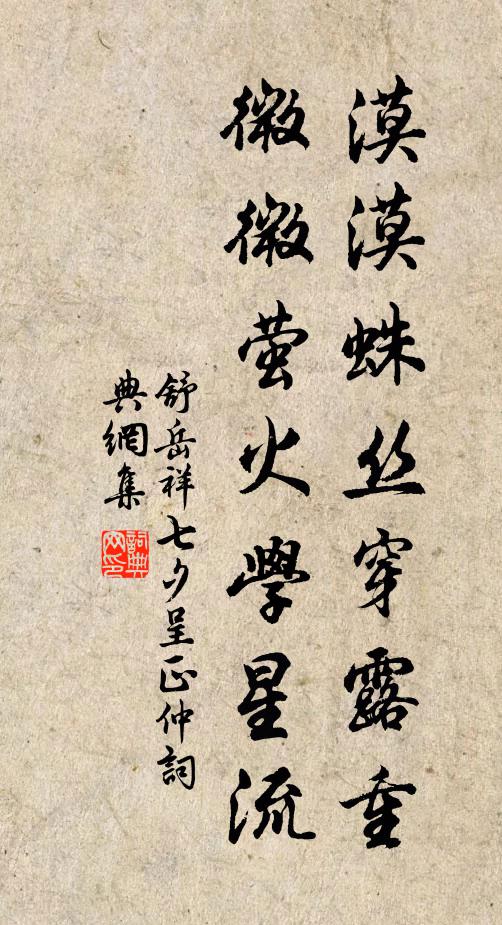 漠漠蛛丝穿露重
微微萤火學星流
舒岳祥七夕呈正仲詞
典網集
詞典网印